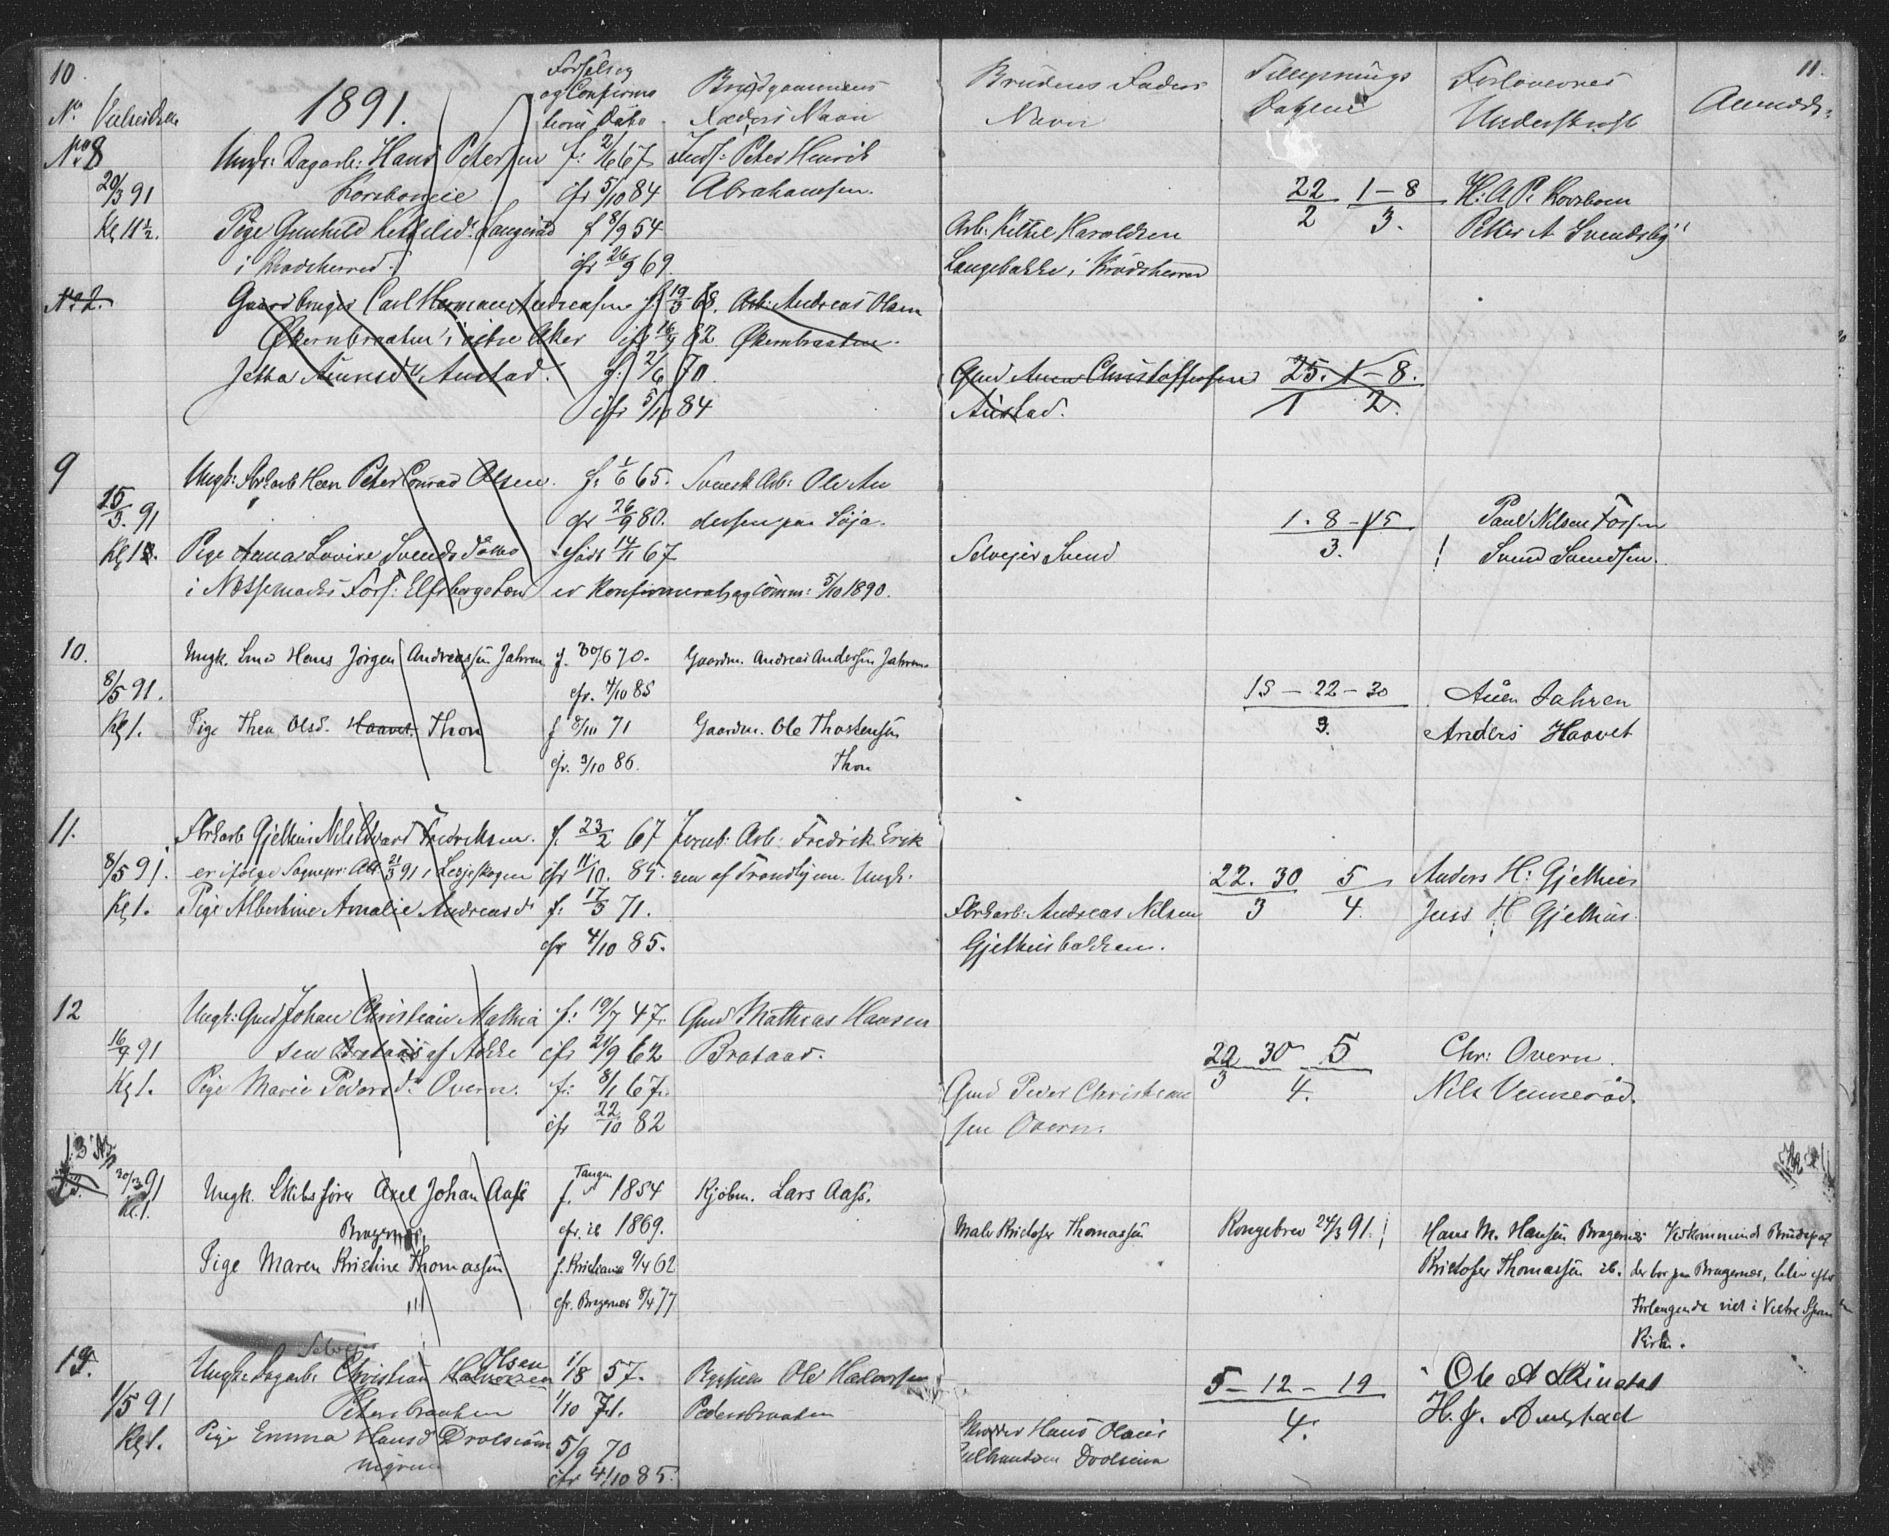 10. 11.
No Vielsesdatum 1891. Fødsels og og Confirma tions Dato Brudgommens Faders Navn Brudens Faders Navn Tillysnings Dagene Forlovernes Underskrift Anmærk:
No 8 Ungk: Dagarb: Hans Petersen f: 2/6 67 Inds: Peter Henrik
20/3 91 Korsbøneie cfr 5/10 84 Abrahamsen. 22/2 1-8/3. H: A P: Korsboen
Kl 11½. Pige Gunhild Kittilsd. Langerud f 8/9 54 Arb: Kittil Haroldsen Petter A Svendsby
i Krødsherred. cfr 26/9 69 Langebakke i Krødsherred
No 2. Gaardbruger Carl Herman Andreasen f. 19/3 68. Arb: Andreas Olsen
Økernbraaten i østre Aker cfr 16/4 82 Økernbraaten.
Jetta Auensd. Austad. f: 2/6 70. Gmd Auen Christoffersen 25. 1-8.
cfr 5/10 84 Austad. 1 2.
9 Ungk: Fbrkarb Hen Peter Conrad Olsen. f: 1/6 65. Svensk Arb: Ole An
25/3. 91 cfr 26/9 80. dersen paa Søja. 1. 8-15 Paul Nilsen Fossen
Kl 12. Pige Anna Lovise Svendsd. født 14/1 67 Selvejer Svend 3. Svend Svendsen.
i Nøssemarks Fors: Elfsborgs Læn er konfirmeret og comm: 5/10 1890.
10. Ungk. Smed Hans Jørgen Andreassen Jahren f. 30/6 70. Gaardm. Andreas Andersen Jahren
8/5 91. cfr. 4/10 85 15-22-30 Auen Jahren
Kl 1. Pige Thea Olsd. Haavet. Thon f 8/10 71 Gaardm. Ole Thostensen 3. Anders Haavet
cfr. 3/10 86. Thon
11. Fbrkarb Gjelhus Nils Edvard Fredriksen. f. 23/2 67 Forus: Arb: Fredrik Erik
8/5 91. er ifølge Sognepr: Att 21/3 91 i Lesjeskogen cfr 11/10. 85. sen af Trondhjem. Ungk. 22. 30 5 Anders H: Gjelhus
Kl 1. Pige Albertine Amalie Andreasd. f. 17/3 71. Fbrkarb: Andreas Nilsen 3 4. Juss H Gjelhus.
cfr 4/10 85. Gjelhusbakken.
12 Ungk: Gmd Johan Christian Mathia f: 19/7 47. Gmd Mathias Hansen
16/4 91 sen Brataas af Aokke cfr 21/9 62 Brataad. 22 30 5 Chr: Overn.
Kl 1. Pige Marie Pedersd. Overn. f: 8/1 67. Gmd Peder Christian 3 4. Nils Vennerød.
cfr 22/10 82 sen Overn.
13
20/3 91 Ungk. Skibsfører Axel Johan Aass f. Tangen 1854 Kjøbm. Lars Aass.
Kl. 1. Bragernes, cfr. ib 1869. Maler Kristofer Thomassen Kongebrev 24/3 91. Hans M. Hansen Bragernes Vedkommende Brudepar
Pige Maren Kristine Thomassen f. Kristiania 9/4 62 Kristofer Thomassen ib. der bor paa Bragernes, blev efter
cfr. Bragernes 8/4 77 Forlangende viet i Vestre
Kirke.
Selvejer
Ungk: Dagarb: Christian Halvorsen Olsen 1/8 57. Ole Halvorsen 5-12-19 Ole A Rustad
1/5 91 Petersbraaten 1/10 71. Pedersbraaten 4. H. J. Austad
Kl 1. Pige Emma Hansd Drolsum 5/9 70 Hans Olaus
cfr 4/10 85. Drolsum